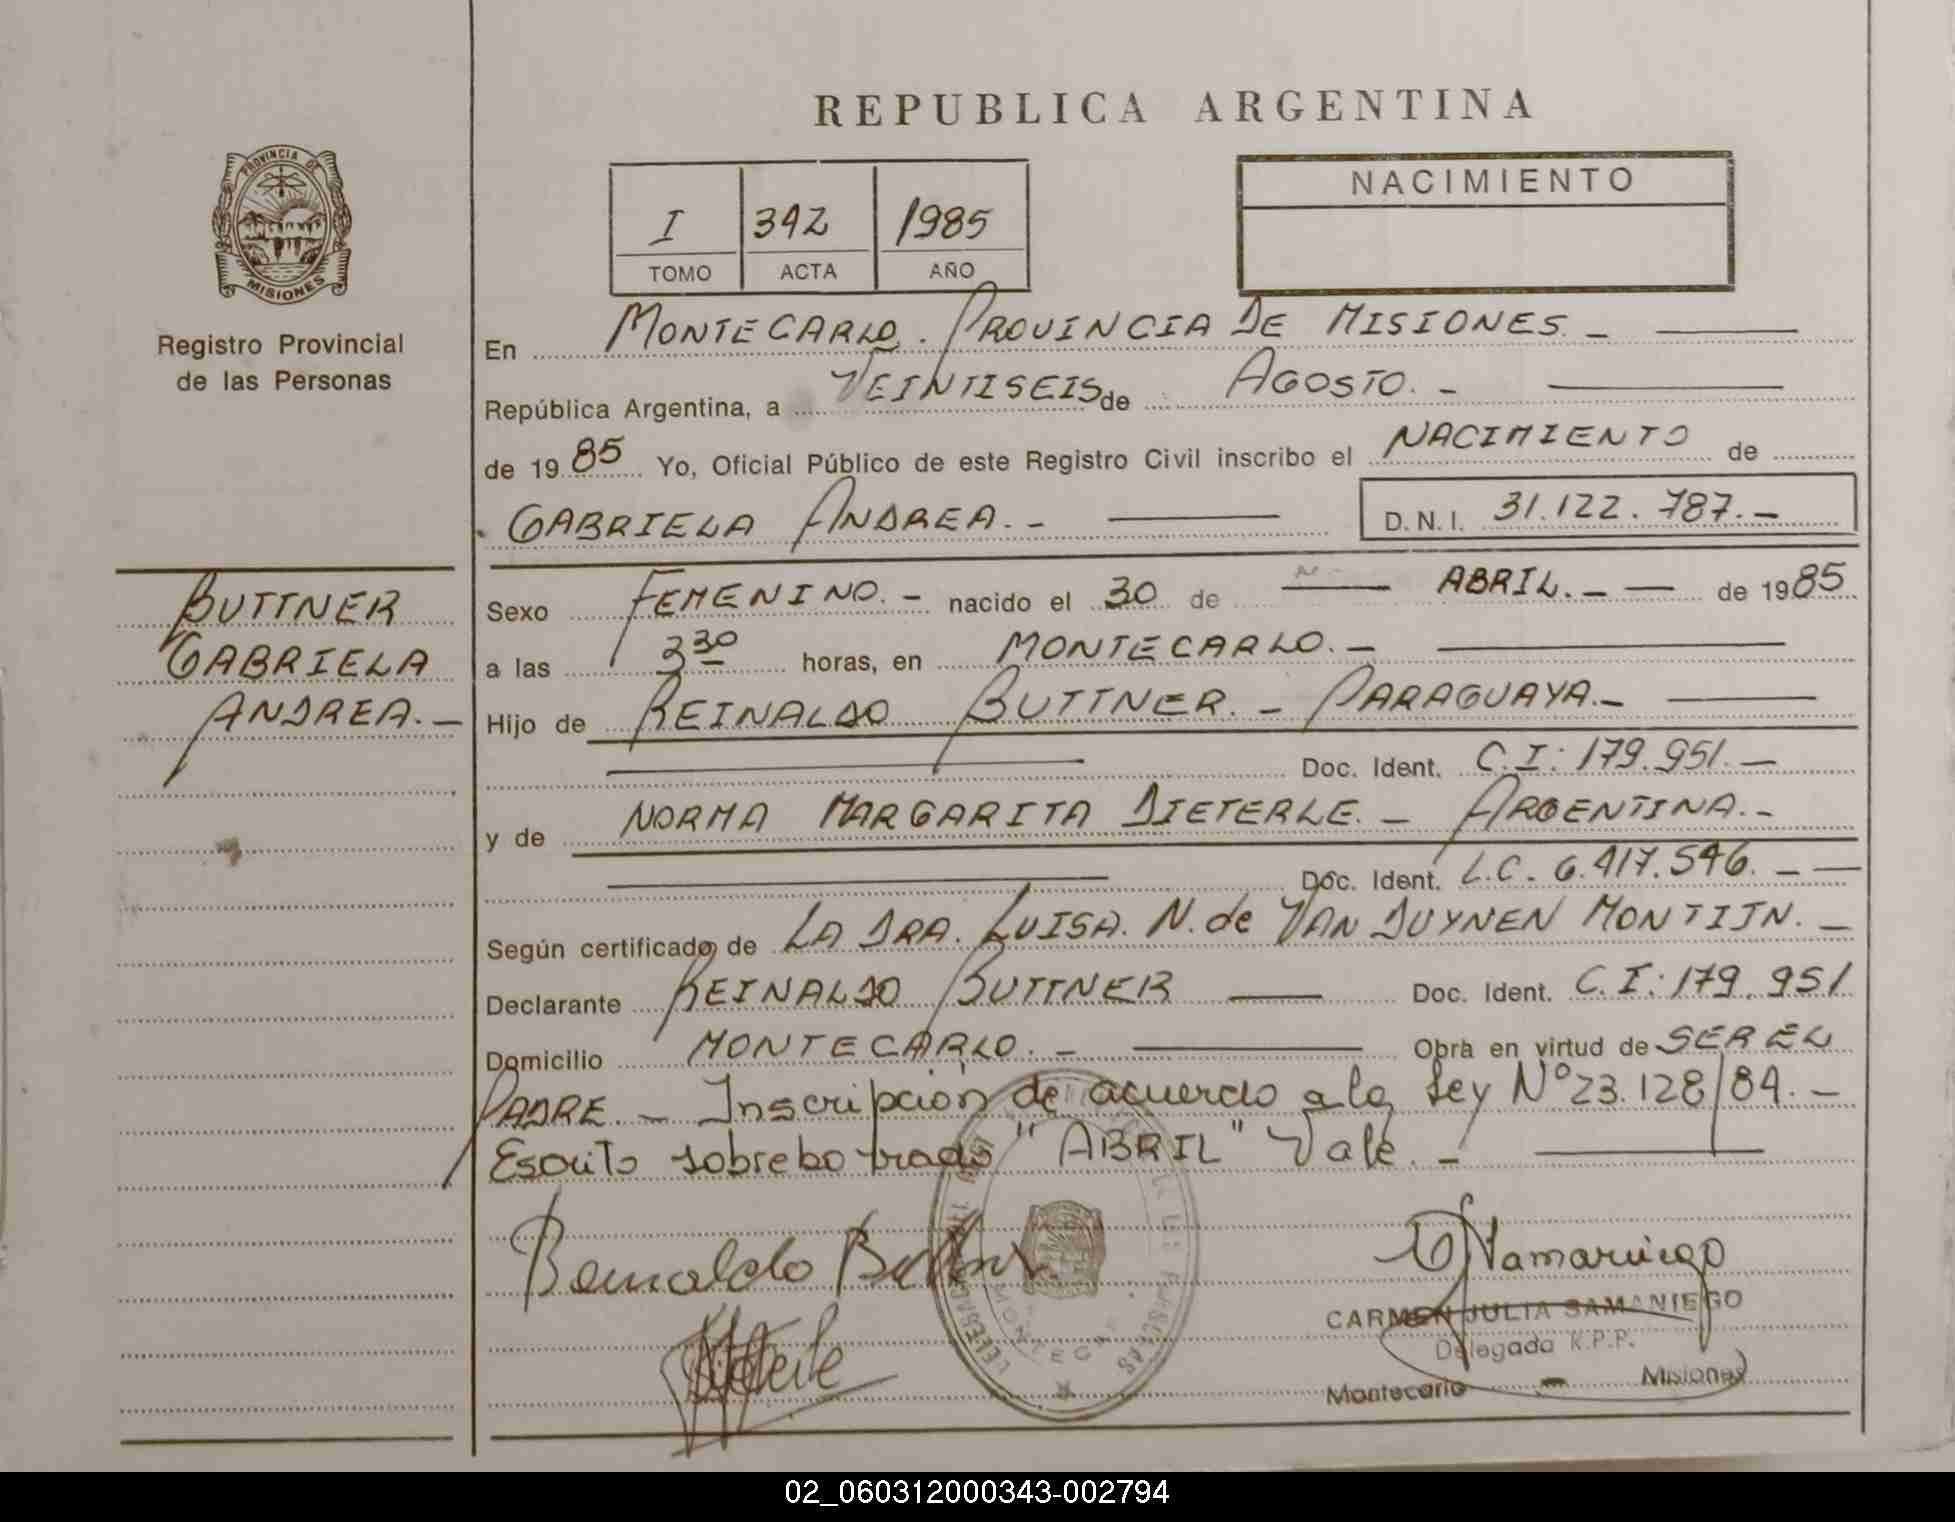 REPUBLICA ARGENTINA
PROVINCIA DE
MISIONES
Registro Provincial
de las Personas
I 342 1985
TOMO ACTA AÑO
NACIMIENTO
En MONTECARLO. PROVINCIA DE MISIONES. -
República Argentina, a VEINTISEIS de AGOSTO. -
de 1985 Yo, Oficial Público de este Registro Civil inscribo el NACIMIENTO de
GABRIELA ANDREA. - D.N.I. 31.122.787. -
BUTTNER
GABRIELA
ANDREA. -
Sexo FEMENINO. - nacido el 30 de ABRIL. - - de 1985
a las 3 30 horas, en MONTECARLO. -
Hijo de REINALDO BUTTNER. - PARAGUAYA. -
Doc. Ident. C.I: 179.951. -
y de NORMA MARGARITA DIETERLE. - ARGENTINA. -
Doc. Ident. L.C. 6.417.546. - -
Según certificado de LA DRA. LUISA. N. de VAN DUYNEN MONTIJN. -
Declarante REINALDO BUTTNER Doc. Ident. C.I: 179.951
Domicilio MONTECARLO. - Obra en virtud de SER EL
PADRE. - Inscripción de acuerdo a la Ley Nº 23.128/84. -
Escrito sobreborrado "ABRIL" Vale. -
CARMEN JULIA SAMANIEGO
Delegada R.P.P.
Montecarlo - Misiones
02_060312000343-002794